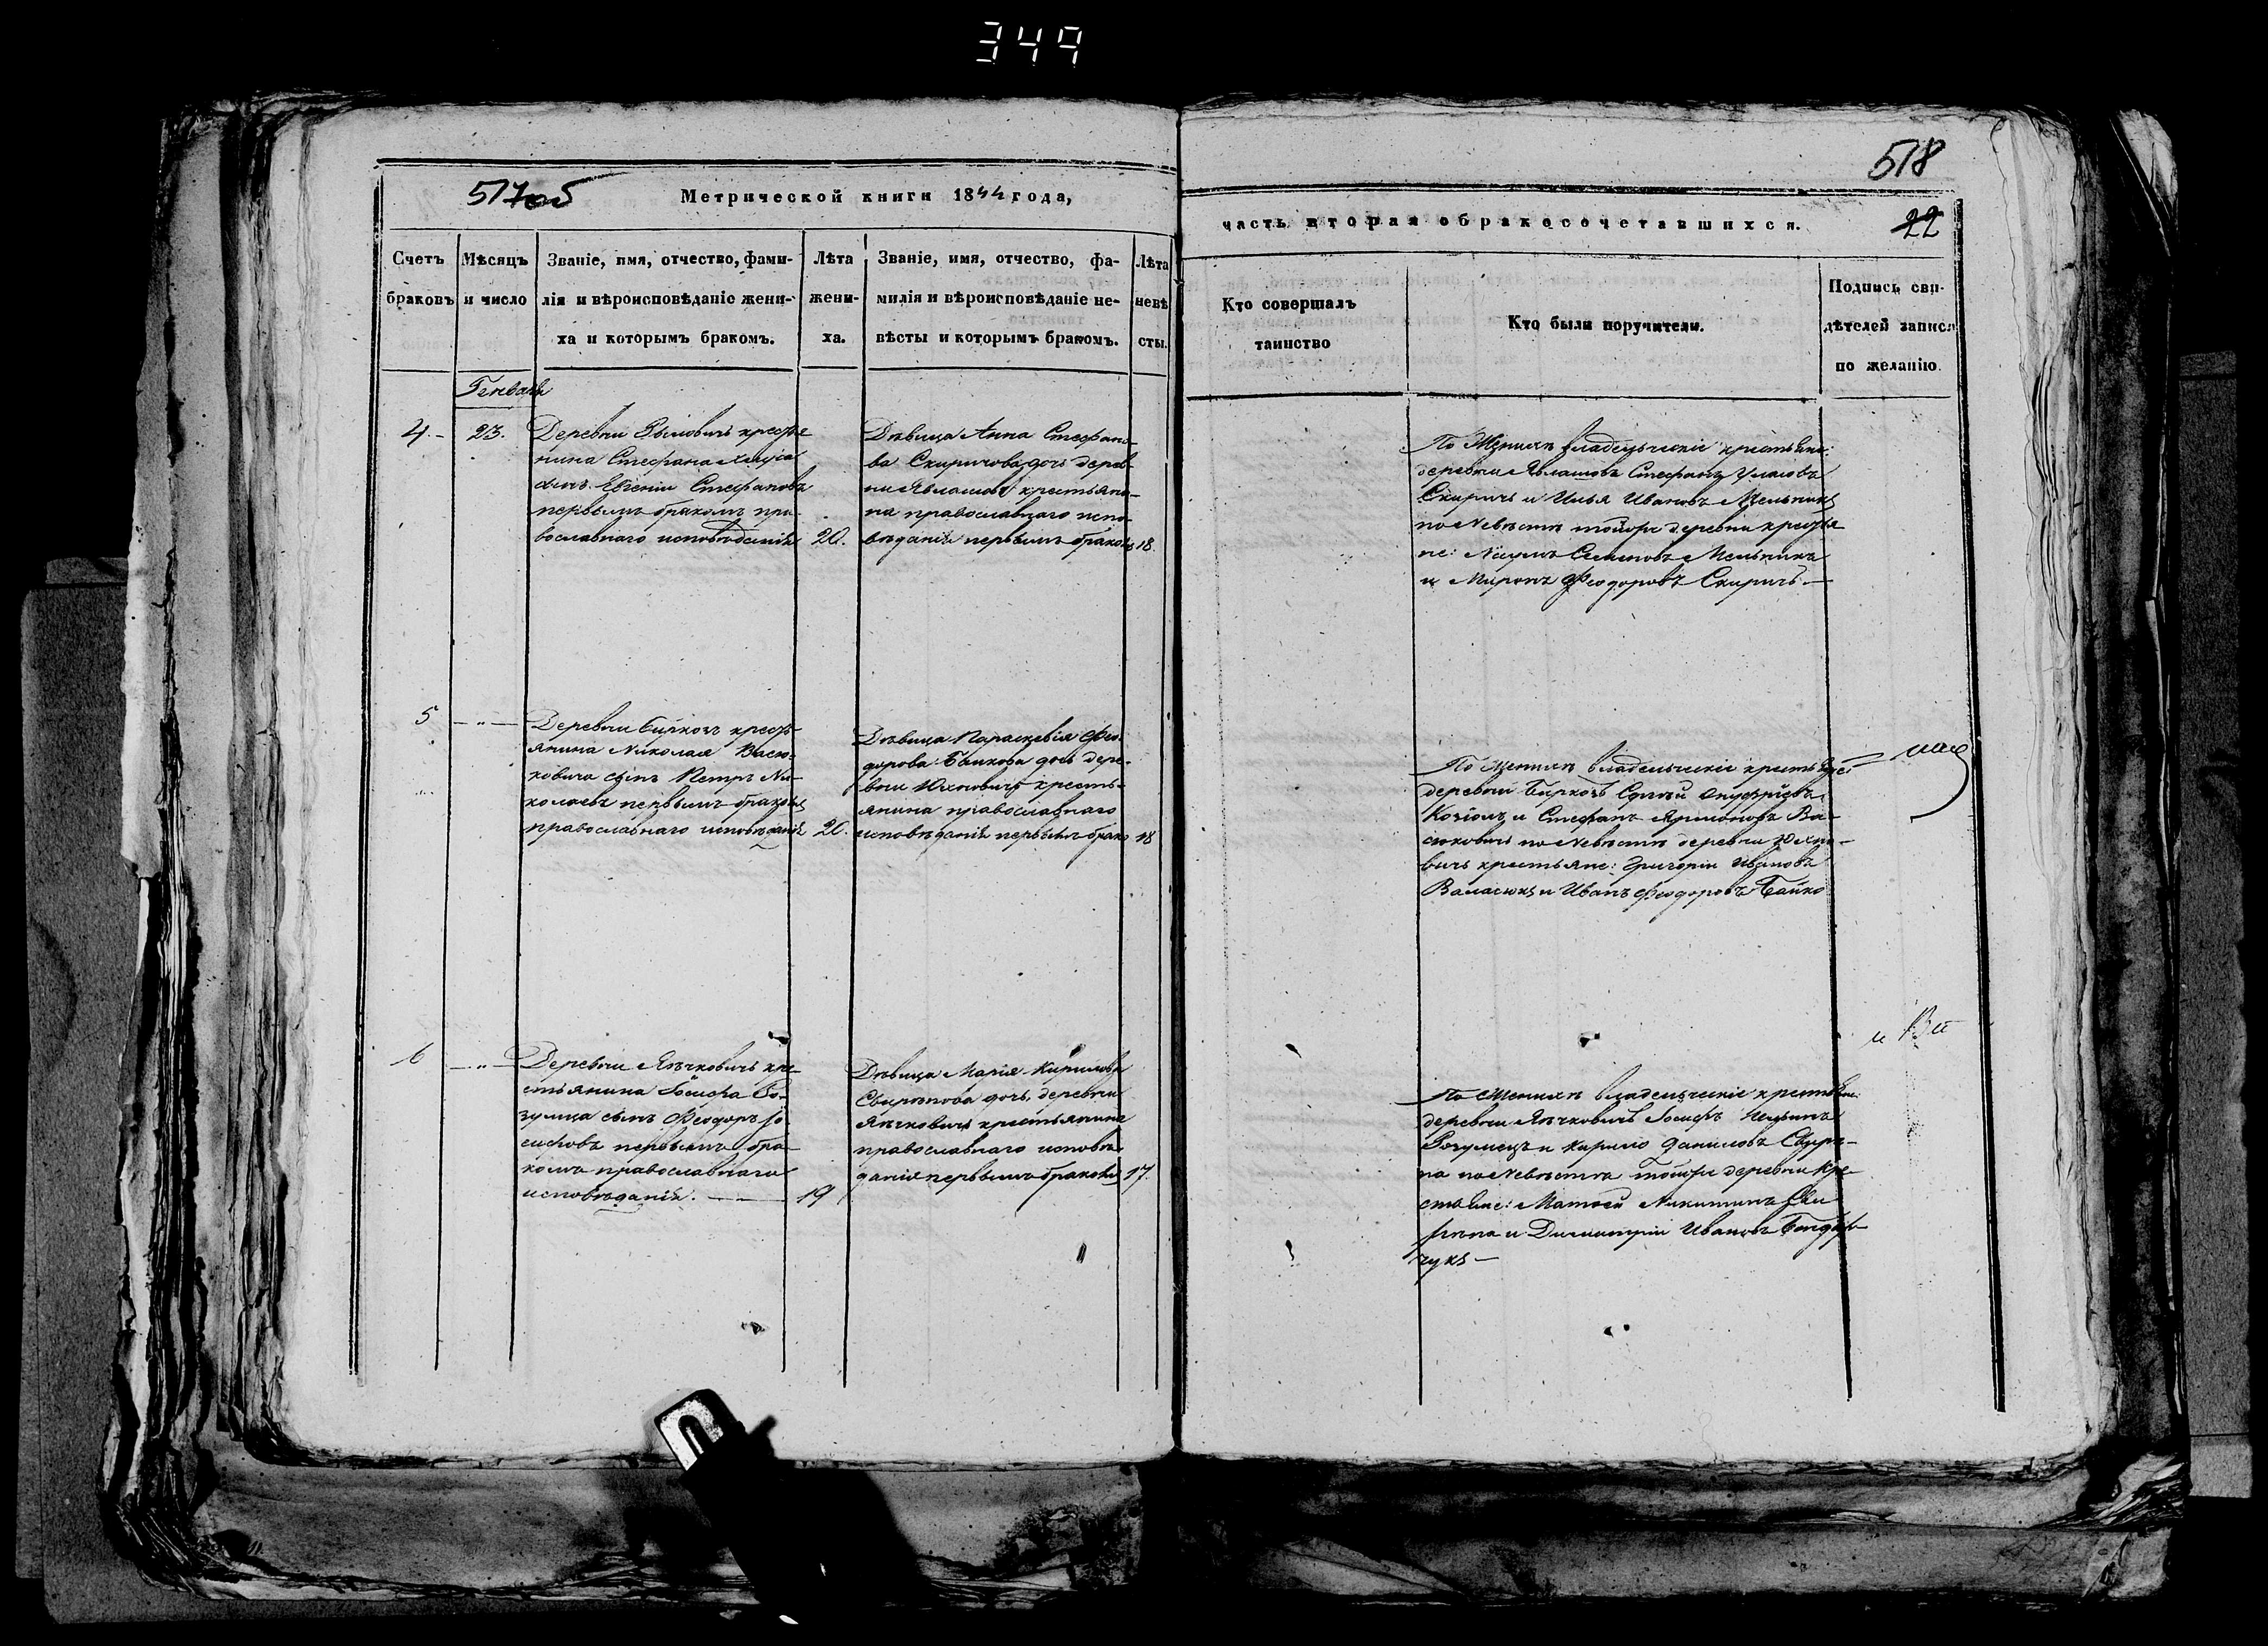 349
517об
Метрической книги 1844 года,
Счетъ браковъ
Мѣсяцъ и число
Званіе, имя, отчество, фами-
лія и вѣроисповѣданіе жени-
ха и которымъ бракомъ.
Лѣта
жени-
ха.
Званіе, имя, отчество, фа-
милія и вѣроисповѣданіе не-
вѣсты и которымъ бракомъ.
Лѣта
невѣ
сты.
518
часть вторая о бракосочетавшихся.
22
Кто совершалъ
таинство
Кто были поручители.
Подпись сви-
дѣтелей записи
по желанію.
Генварь
4.
23.
Деревни крестья
нина Стефана
сынъ Евгеній Стефановъ
первымъ бракомъ пра-
вославнаго исповѣданія
20.
Дѣвица Анна Стефано-
ва Скиричова дочь дерев-
ни крестьяни-
на православнаго испо-
вѣданія первымъ бракомъ
18.
По Женихѣ владельческіе крестьяне:
деревни Стефанъ
Скиричъ и Илья Ивановъ Мельникъ
по Невѣстѣ тойже деревни крестья
не: Наумъ Семеновъ Мельникъ
и Миронъ Феодоровъ Скиричъ.
5
"
Деревни крестъ-
янина Николая Васю-
ковича сынъ Петръ Ни-
колаевъ первымъ бракомъ
православнаго исповѣданія
20.
Дѣвица Параскевія Фео-
дорова Байкова дочь дере-
вни Юхновичъ кресть-
янина православнаго
исповѣданія первымъ брако
18
По Женихѣ владельческіе крестьяне:
деревни Сергѣй Онуфріевъ
и Стефанъ Ва-
сюковичъ по Невѣстѣ деревни Юхно-
вичъ крестьяне: Григорій Ивановъ
Валасюкъ и Иванъ Феодоровъ Байко
6
"
Деревни Ячковичъ кре-
стьянина Іосифа
сынъ Феодоръ Іо
сифовъ первымъ бра-
комъ православнаго
исповѣданія.
19
Дѣвица Марія Кирилова
Свирѣпова дочь деревни
Ячковичъ крестьянина
православнаго исповѣ-
данія первымъ бракомъ
17.
По Женихѣ владельческіе крестьяне:
деревни Ячковичъ Іосифъ
и Кирило Даниловъ Свирѣ-
па по Невѣстѣ тойже деревни кре-
стьяне: Матвѣй Никитинъ Сви
рѣпа и Димитрій Ивановъ Бондар-
чукъ